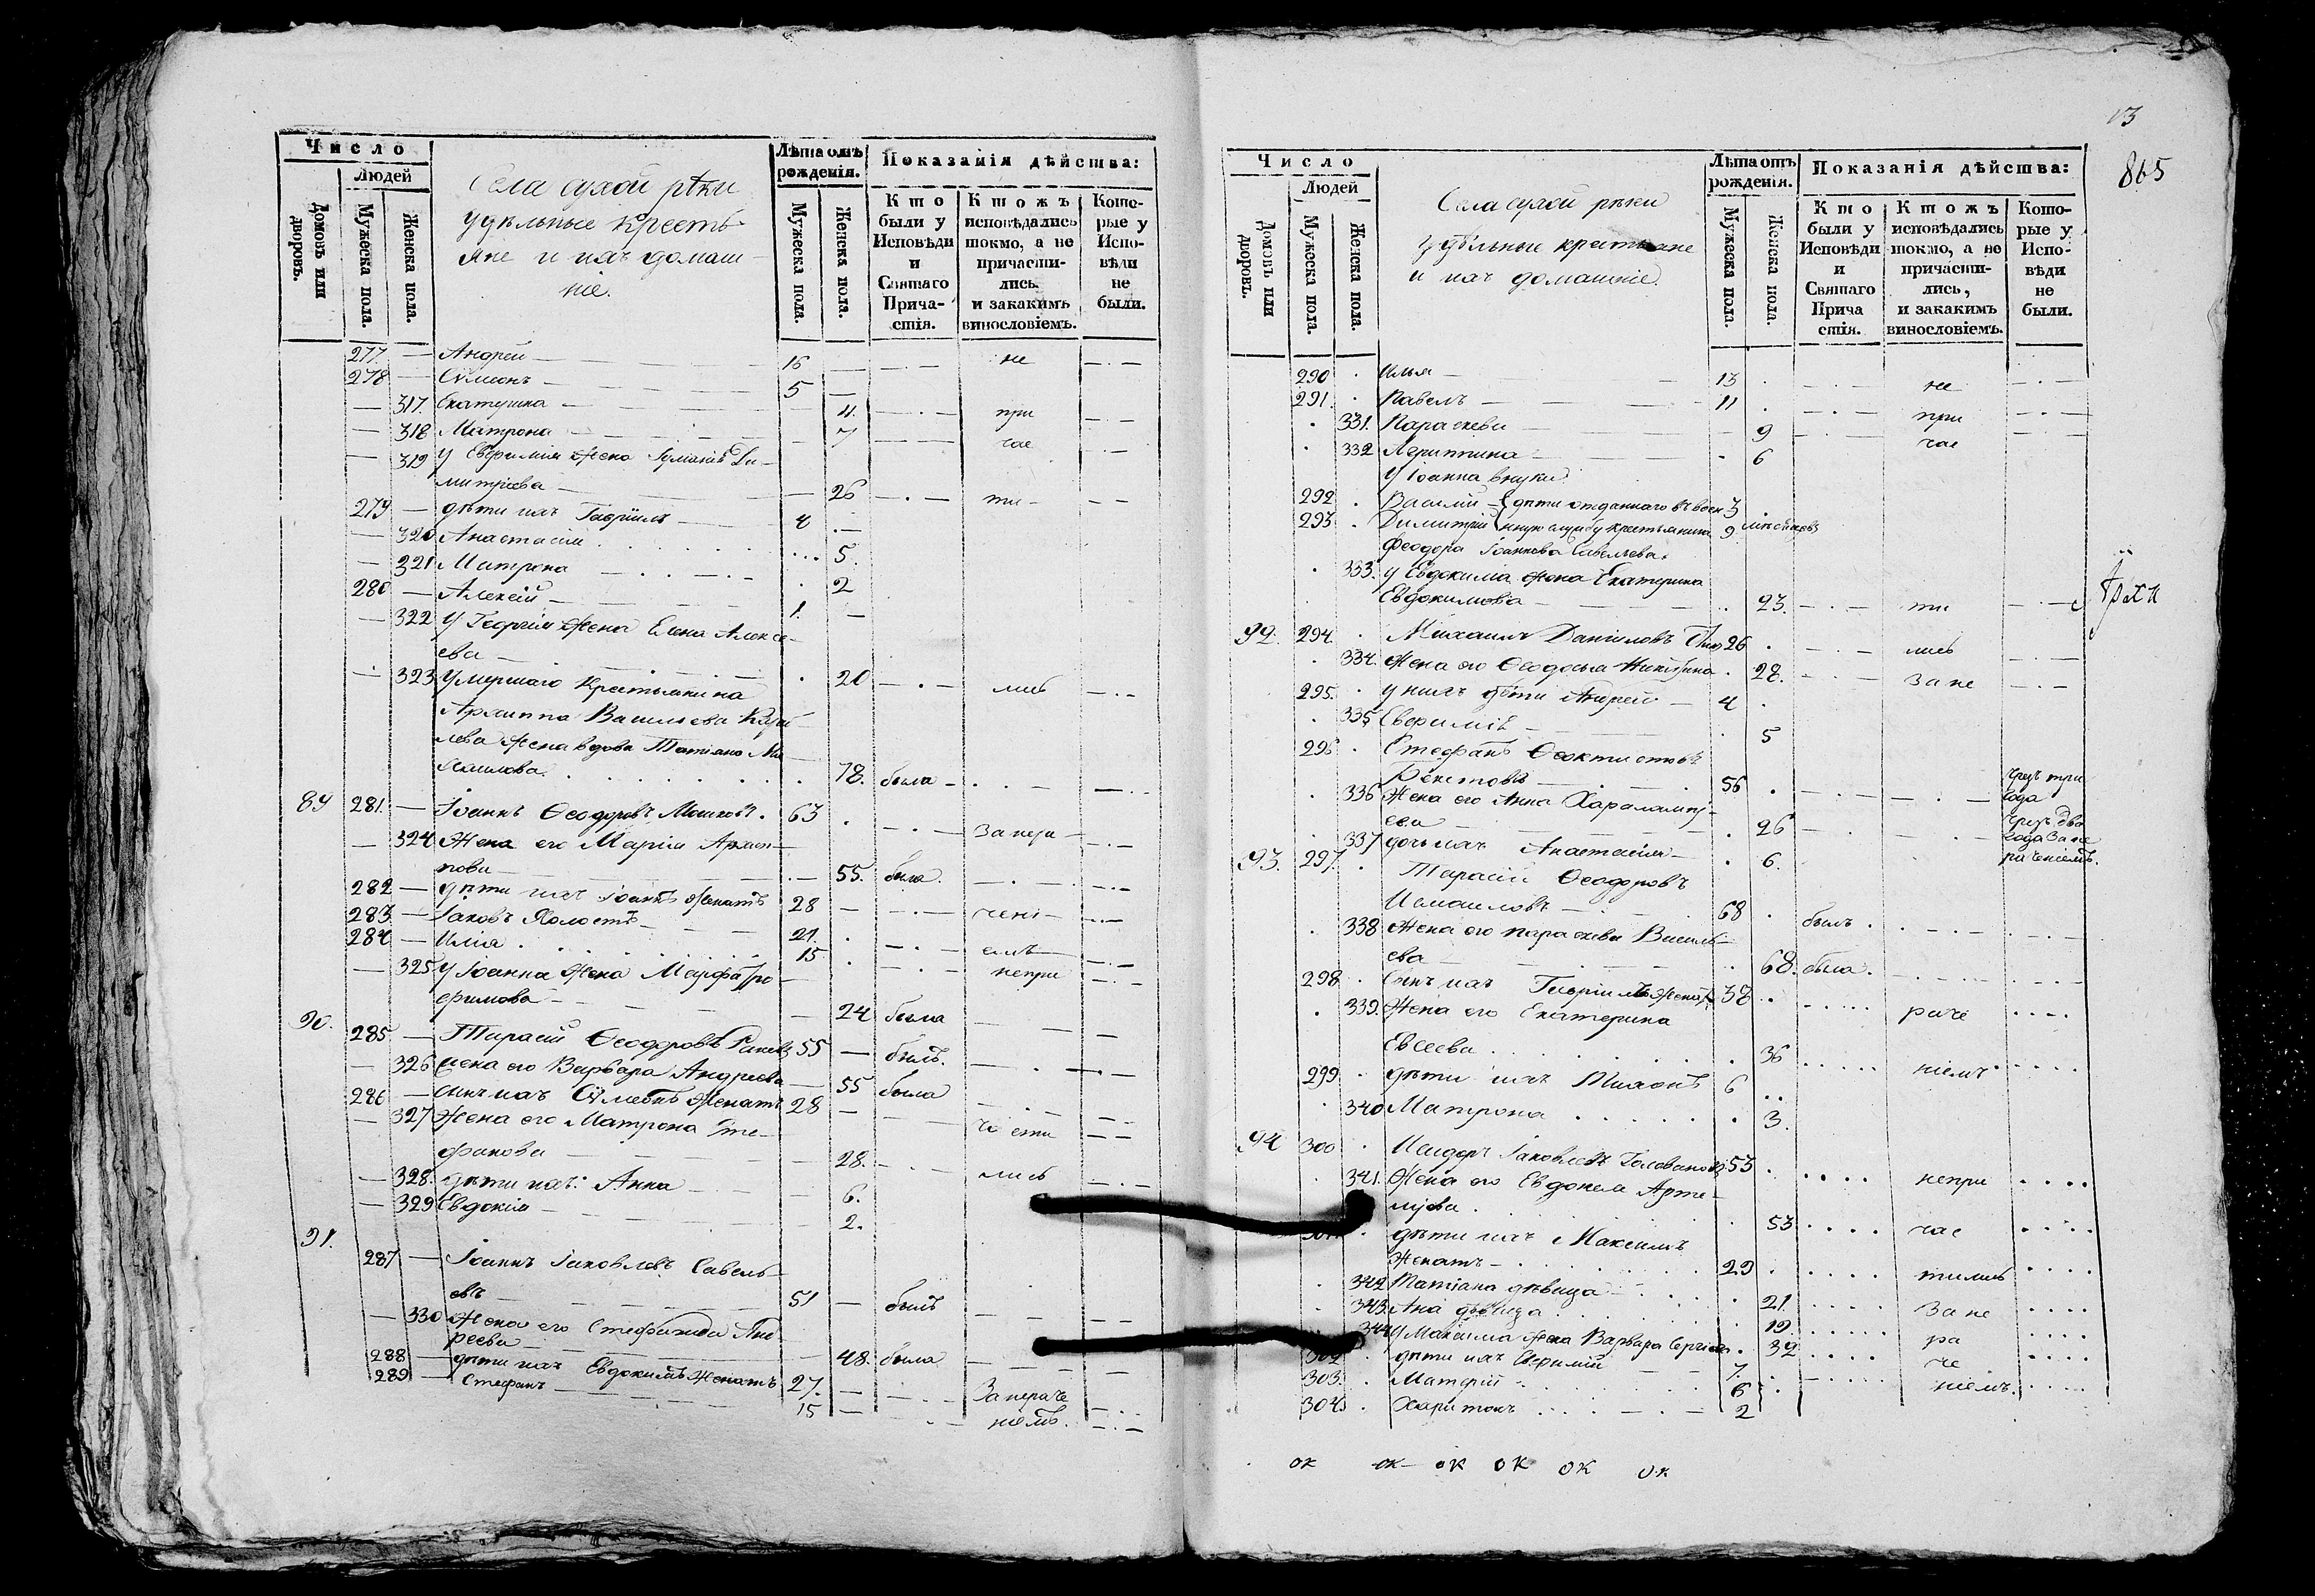 Число
Людей
Домовъ или дворовъ.
Мужеска пола.
Женска пола.
Села сухой рѣки
удѣльные кресть-
яне и ихъ домаш-
ніе.
Лѣта отъ рожденія.
Мужеска пола.
Женска пола.
Показанія дѣйства:
Кто были у Исповѣди и Святаго Прича-стія.
Ктожъ исповѣдались токмо, а не причасти-лись. и закакимъ винословіемъ.
Кото-рые у Испо-вѣди не были.
277. — Андрей — 16 — не
278 — Сѵмеонъ — 5 —
— 317. Екатерина — 11. при
— 318 Матрона — 7 час
— 319 У Евфимія жена Ди-
митріева — 26 ти-
279 — дѣти ихъ Гавріилъ 4
— 320 Анастасія 5.
— 321 Матрона 2
280 — Алексій 1. —
— 322 У Георгія жена Елена Алексе-
ева — 20 лись
— 323 Умершаго крестьянина
Архиппа Васильева
жена вдова Татіана
78. была
89 281. — Іоаннъ Ѳеодоровъ 63 за нера
— 324 Жена его Марія
55. была.
282 — дѣти ихъ Іоаннъ женатъ 28 — чені
283. — Іаковъ Холостъ 21. емъ
284 — Илія 15 непри
— 325 У Іоанна жена Марфа Тро
фимова — 24 была
90. 285 — Тарасій Ѳеодоровъ 55 — былъ.
— 326 Жена его Варвара Андреева 55 была
286 — сынъ ихъ Сѵмеонъ женатъ 28 —
— 327 Жена его Матрона Сте-
фанова — 28. — лись
— 328. дѣти ихъ: Анна 6.
— 329 Евдокія — 2.
91. 287 — Іоаннъ Іаковлевъ Савель-
евъ 51 — былъ
— 330 Жена его Стефанида Анд
реева 48. была
288 — дѣти ихъ Евдокимъ женатъ 27. — За нераче
289 — Стефанъ 15 — ніемъ.
13
865
Число
Людей
Домовъ или дворовъ.
Мужеска пола.
Женска пола.
Села сухой рѣки
удѣльные крестьяне
и ихъ домашніе.
Лѣта отъ рожденія.
Мужеска пола.
Женска пола.
Показанія дѣйства:
Кто были у Исповѣди и Святаго Прича стія.
Ктожъ исповѣдались токмо, а не причасти-лись, и закакимъ винословіемъ.
Кото-рые у Испо-вѣди не были.
290 Илья — 13 не
291. Павелъ 11 при
331. Параскева 9 час
332 Агриппина 6
У Іоанна внуки
292 Василій дѣти отданнаго въ воен 3
293 Димитрій ную службу крестьянина 9 мѣсяцевъ
Феодора Іоаннова Савельева.
333. У Евдокима жена Екатерина
Евдокимова — 23. ти
92. 294. Михаилъ Даніиловъ 26 лись
334. Жена его Ѳеодосья Никитина 28. За не
295. у нихъ дѣти Андрей 4
335 Евфимія 5
296 Стефанъ Ѳеоктистовъ
56 чрезъ три года
336 Жена его Анна Харалампі-
ева 26 чрезъ два года За не раченіемъ.
337 дочь ихъ Анастасія 6.
93. 297. Тарасій Ѳеодоровъ
Исмаиловъ 68 былъ.
338 Жена его Параскева Василь-
ева 68. была.
298 Сынъ ихъ Гавріилъ женатъ 38
339. Жена его Екатерина раче
Евсеева 36 ніемъ
299 дѣти ихъ Тихонъ 6
340 Матрона 3.
94 300 Исидоръ Іаковлевъ Головановъ 53 непри
341. Жена его Евдокея Арте-
мьева 53 час
дѣти ихъ Максимъ
Женатъ 29 тились
342 Татіана дѣвица 21 За не
343. Анна дѣвица 19 ра
344 У Максима жена Варвара Сергіева 32 че
302 дѣти ихъ Евфимій 7. ніемъ.
303. Матфій 6
304. Харитонъ 2
ок ок ок ок ок ок